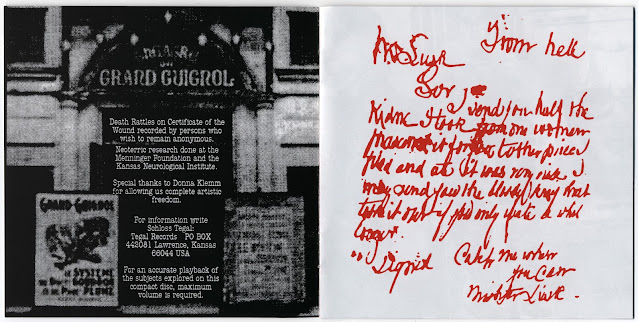 GRAND GUIGNOL
Death Rattles on Certificate of the
Wound recorded by persons who
wish to remain anonymous.
Neoterric research done at the
Menninger Foundation and the
Kansas Neurological Institute.
Special thanks to Donna Klemm
for allowing us complete artistic
freedom.
For information write
Schloss Tegal:
Tegal Records PO BOX
442081 Lawrence, Kansas
66044 USA
For an accurate playback of
the subjects explored on this
compact disc, maximum
volume is required.
GRAND GUIGNOL
SYSTEME
PLUME
From hell
Mr Lusk
Sor
I send you half the
Kidne I took from one women
it for tother piece
fried and ate it was very nise I
may send you the bloody knif that
took it out if you only wate a whil
longer.
Signed Catch me when
you can
Mishter Lusk.